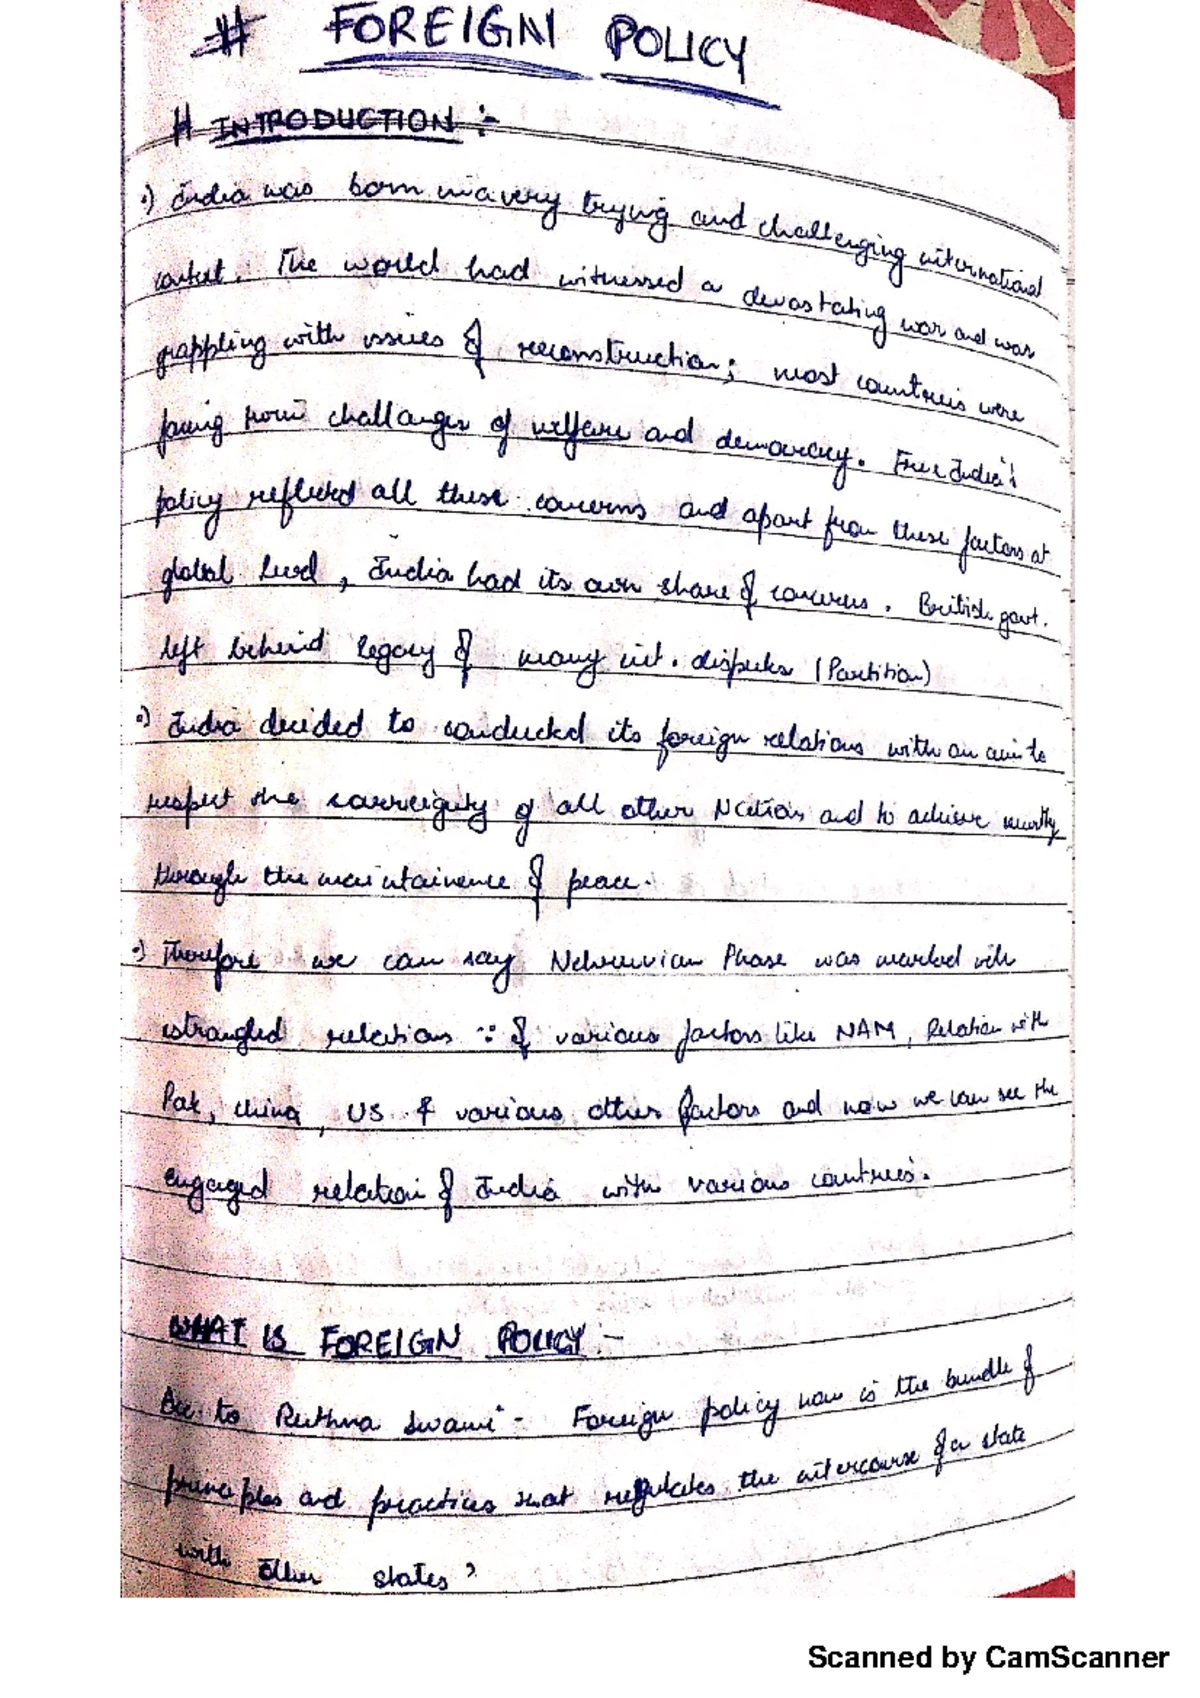 # FOREIGN POLICY
# INTRODUCTION :-
•) India was born in a very trying and challenging international
context. The world had witnessed a devastating war and was
grappling with issues of reconstruction; most countries were
facing from challanges of welfare and democracy. Free India's
policy reflected all these concerns and apart from these factors at
global level, India had its own share of concerns. British govt.
left behind legacy of many int. disputes (Partition)
•) India decided to conducted its foreign relations with an aim to
respect the sovereignty of all other Nations and to achieve security
through the maintainence of peace.
•) Therefore we can say Nehruvian Phase was marked with
estrangled relations ∵ of various factors like NAM, Relation with
Pak, china, US & various other factors and now we can see the
engaged relation of India with various countries.
WHAT IS FOREIGN POLICY :-
Acc. to Ruthna Swami - Foreign policy now is the bundle of
principles and practices that regulates the intercourse of a state
with other states"
Scanned by CamScanner